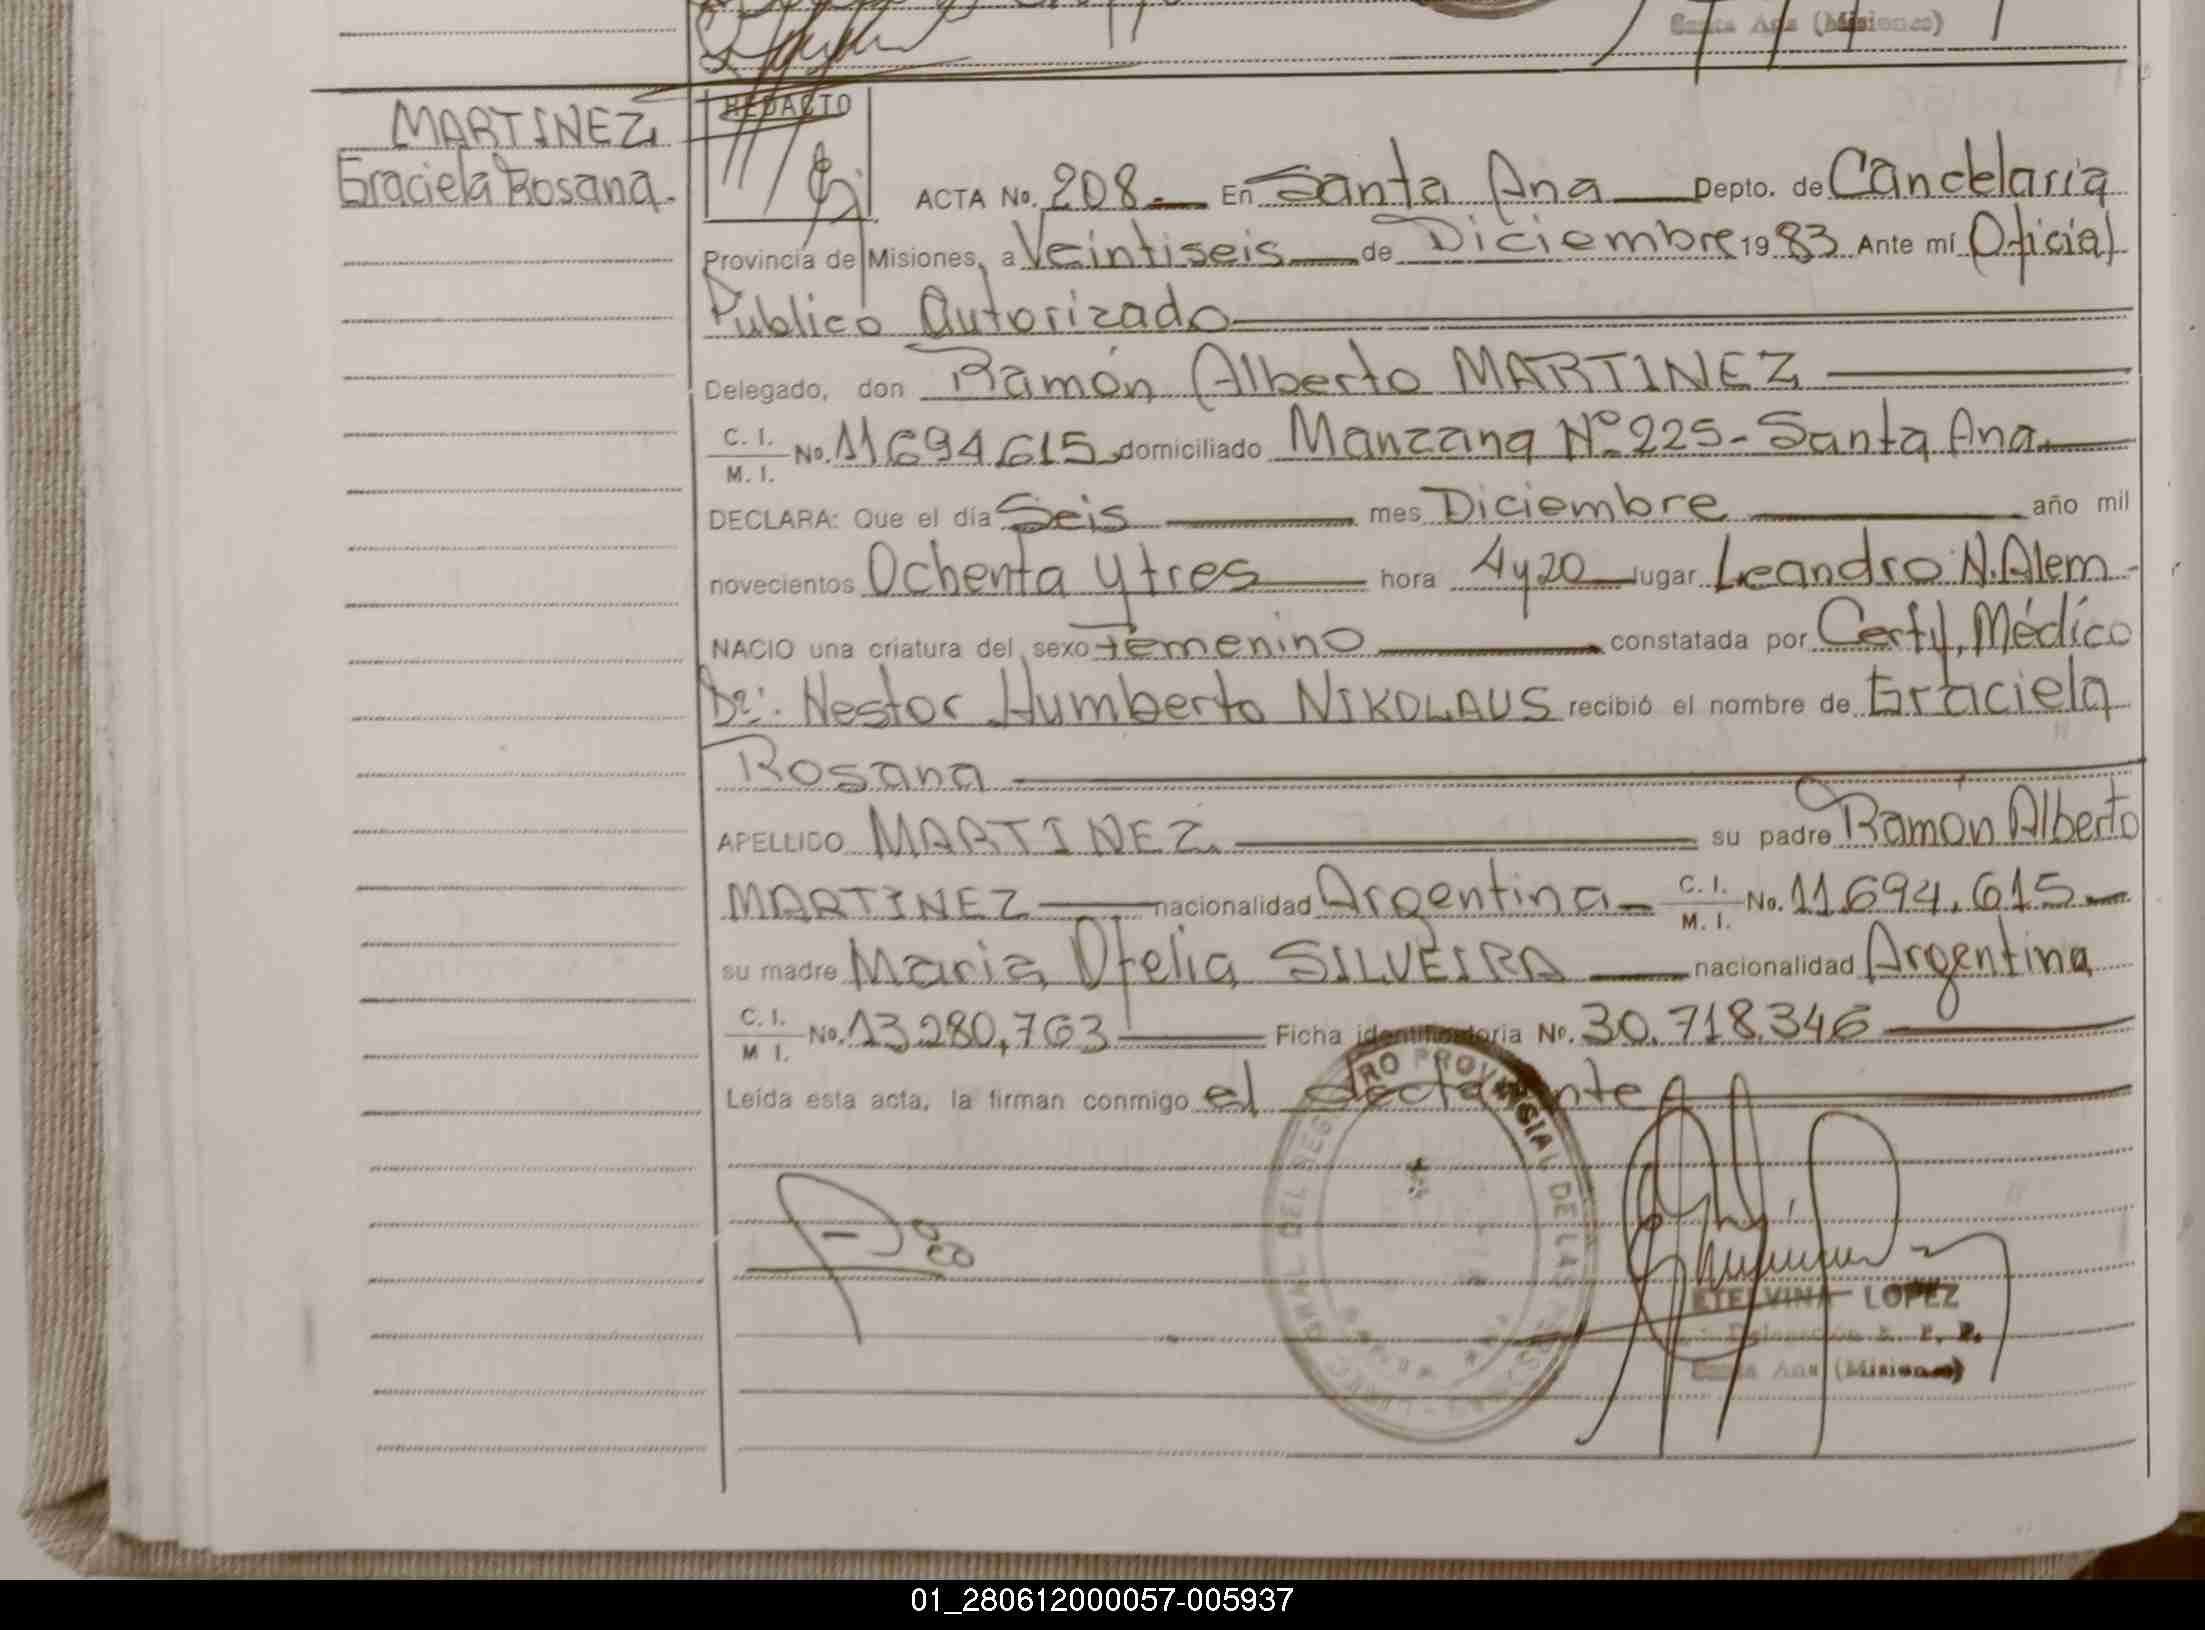 Santa Ana (Misiones)
MARTINEZ
Graciela Rosana.
REDACTO
ACTA No. 208.- En Santa Ana Depto. de Candelaria
Provincia de Misiones, a Veintiseis de Diciembre 1983 Ante mí Oficial
Publico Autorizado
Delegado, don Ramón Alberto MARTINEZ
C. I. / M. I. No. 11.694.615 domiciliado Manzana Nº 225- Santa Ana
DECLARA: Que el día Seis mes Diciembre año mil
novecientos Ochenta y tres hora 4 y 20 lugar Leandro N. Alem-
NACIO una criatura del sexo femenino constatada por Certf. Médico
Dr: Nestor Humberto NIKOLAUS recibió el nombre de Graciela
Rosana
APELLIDO MARTINEZ su padre Ramón Alberto
MARTINEZ nacionalidad Argentina- C. I. / M. I. No. 11.694.615-
su madre Maria Ofelia SILVEIRA nacionalidad Argentina
C. I. / M I. No. 13.280.763 Ficha identificatoria No. 30.718.346
Leída esta acta, la firman conmigo el declarante
RO PROVINCIAL DE LAS
ETELVINA LOPEZ
Santa Ana (Misiones)
01_280612000057-005937